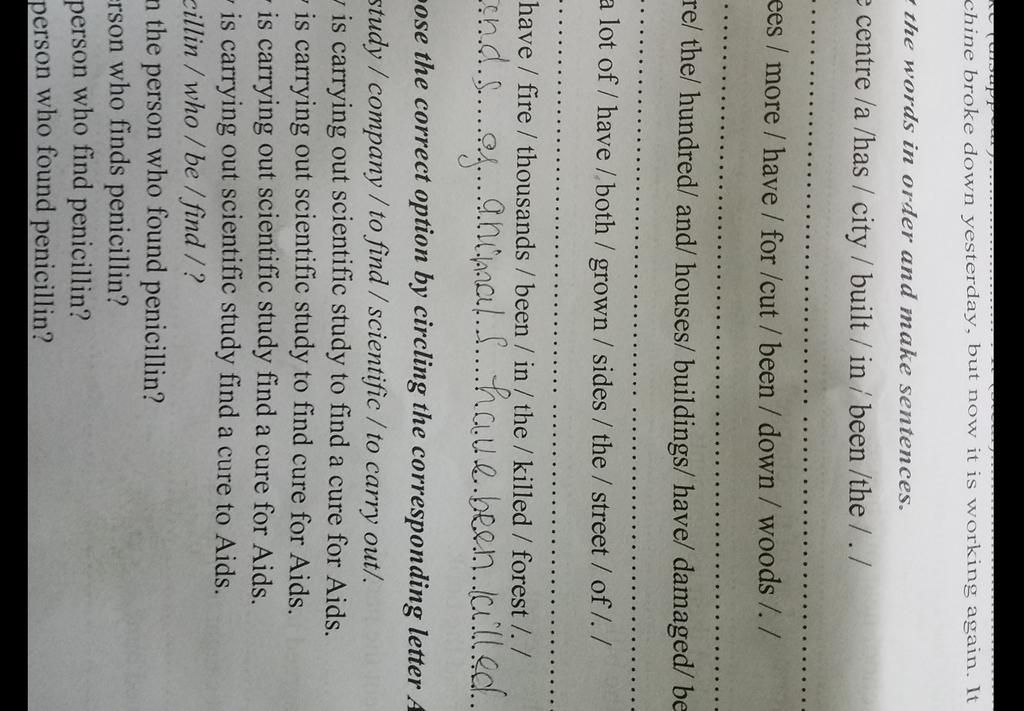 chine broke down yesterday, but now it is working again. It
the words in order and make sentences.
centre /a /has / city / built / in / been /the / . /
ees / more / have / for /cut / been / down / woods / . /
re/ the/ hundred/ and/ houses/ buildings/ have/ damaged/ be
a lot of / have / both / grown / sides / the / street / of / . /
have / fire / thousands / been / in / the / killed / forest / . /
ands of animals have been killed.
ose the correct option by circling the corresponding letter A
study / company / to find / scientific / to carry out/.
is carrying out scientific study to find a cure for Aids.
is carrying out scientific study to find cure for Aids.
is carrying out scientific study find a cure for Aids.
is carrying out scientific study find a cure to Aids.
cillin / who / be / find / ?
n the person who found penicillin?
rson who finds penicillin?
person who find penicillin?
person who found penicillin?